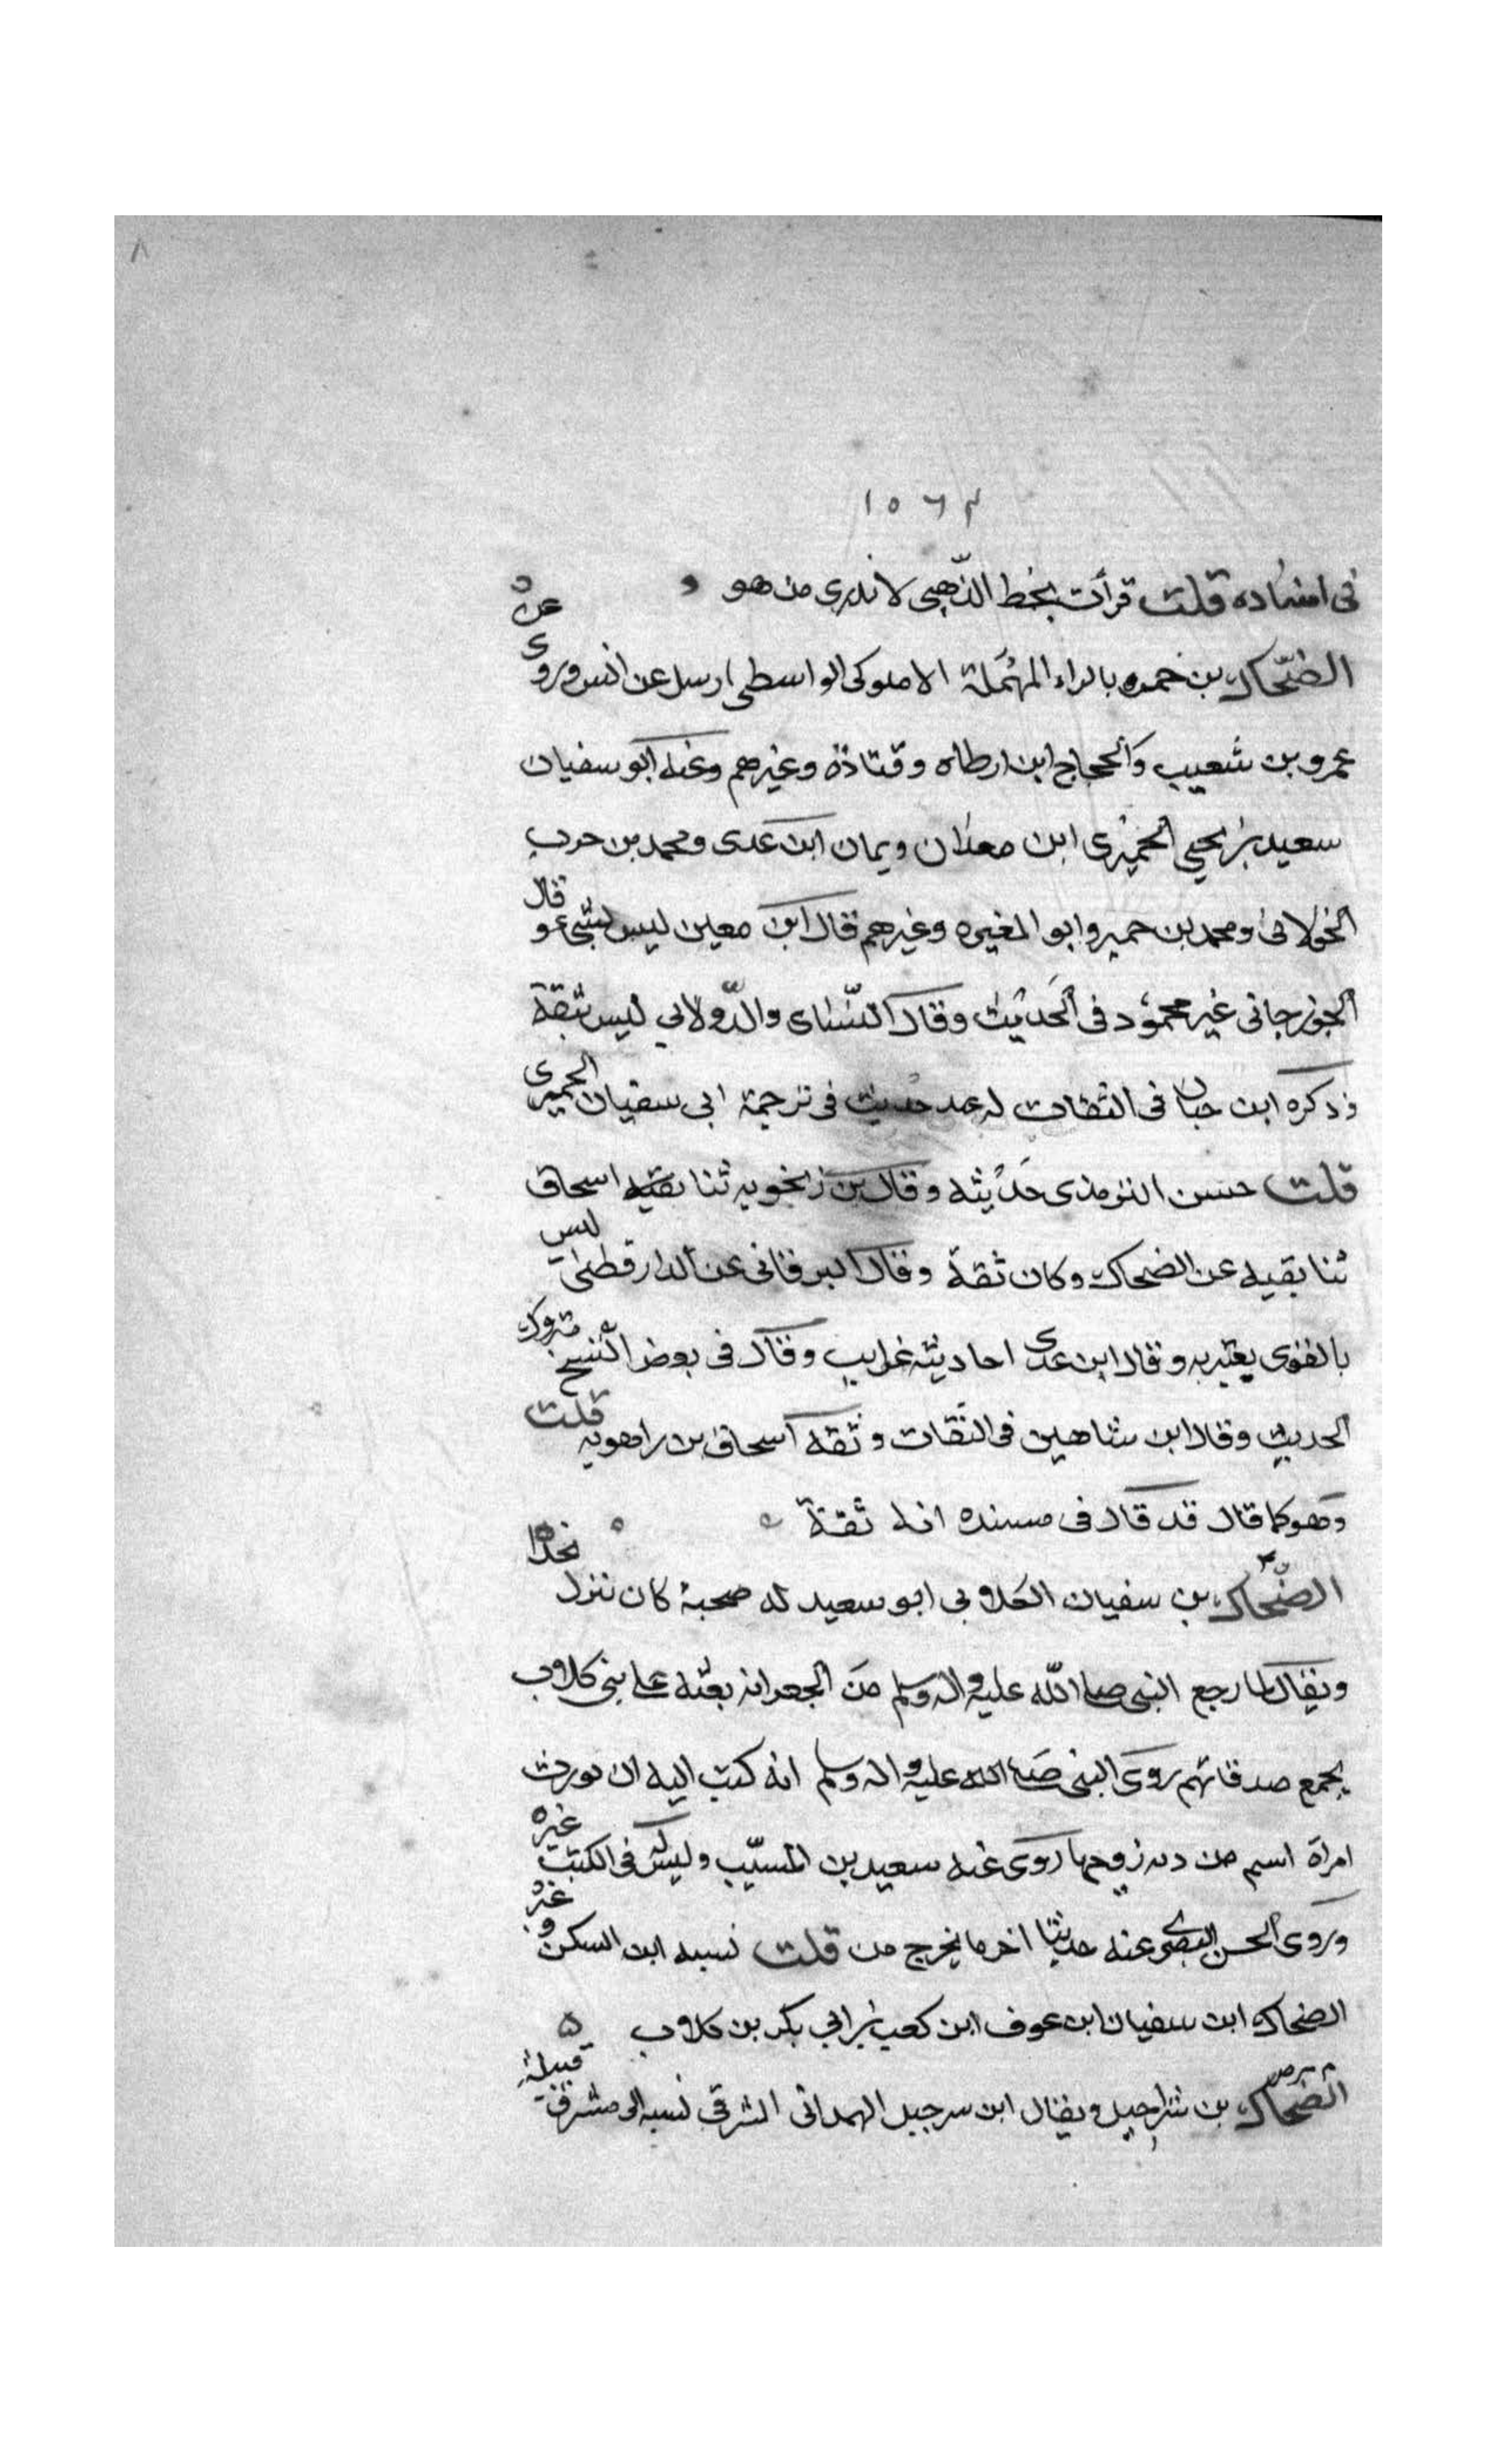 ٨
١٥٦٢
فى اسناده قلت قرأت بخط الذّهبى لا ندرى من هو
الضّحاك بن حمره بالراء المهملة الاملوكى الواسطى ارسل عن انس وروى عن
عمرو بن شعيب والحجاج ابن ارطاه وقتادة وغيرهم وعنه ابو سفيان
سعيد بن يحيى الحميرى ابن معدان ويمان ابن عدى ومحمد بن حرب
الخولانى ومحمد بن حمير وابو المغيره وغيرهم قال ابن معين ليس بشىء وقال
الجوزجانى غير محمود فى الحديث وقال النّسائى والدّولابى ليس بثقة
وذكره ابن حبان فى الثقات له عنده حديث فى ترجمة ابى سفيان الحميرى
قلت حسن الترمذى حديثه وقال بن زنجويه ثنا بقيه اسحاق
ثنا بقيه عن الضحاك وكان ثقة وقال البرقانى عن الدارقطنى ليس
بالقوى يعتبر به وقال ابن عدى احاديثه غرايب وقال فى بعض النسخ متروك
الحديث وقال ابن شاهين فى الثقات وثقه اسحاق بن راهويه قلت
وهو كما قال قد قال فى مسنده انه ثقة
الضّحاك بن سفيان الكلابى ابو سعيد له صحبة كان ننزل نجدا
ويقال لما رجع النبى صلى الله عليه واله وسلم من الجعرانه بعثه على بنى كلاب
يجمع صدقاتهم روى النبى صلى الله عليه واله وسلم انه كتب اليه ان يورث
امراة اسيم من ديه زوجها روى عنه سعيد بن المسيّب وليس له فى الكتب غيره
وروى الحسن البصرى عنه حديثا اخر ما يخرج من قلت نسبه ابن السكن و
الضحاك ابن سفيان ابن عوف ابن كعب بن ابى بكر بن كلاب
الضحاك بن شراحيل ويقال ابن شرحبيل الهمدانى المشرقى نسبه الى مشرق قبيلة